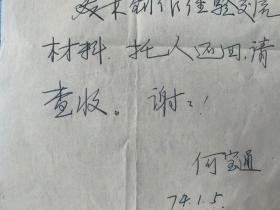 美术创作经验交流
材料.托人送回,请
查收。谢谢!
何宝通
74.1.5.